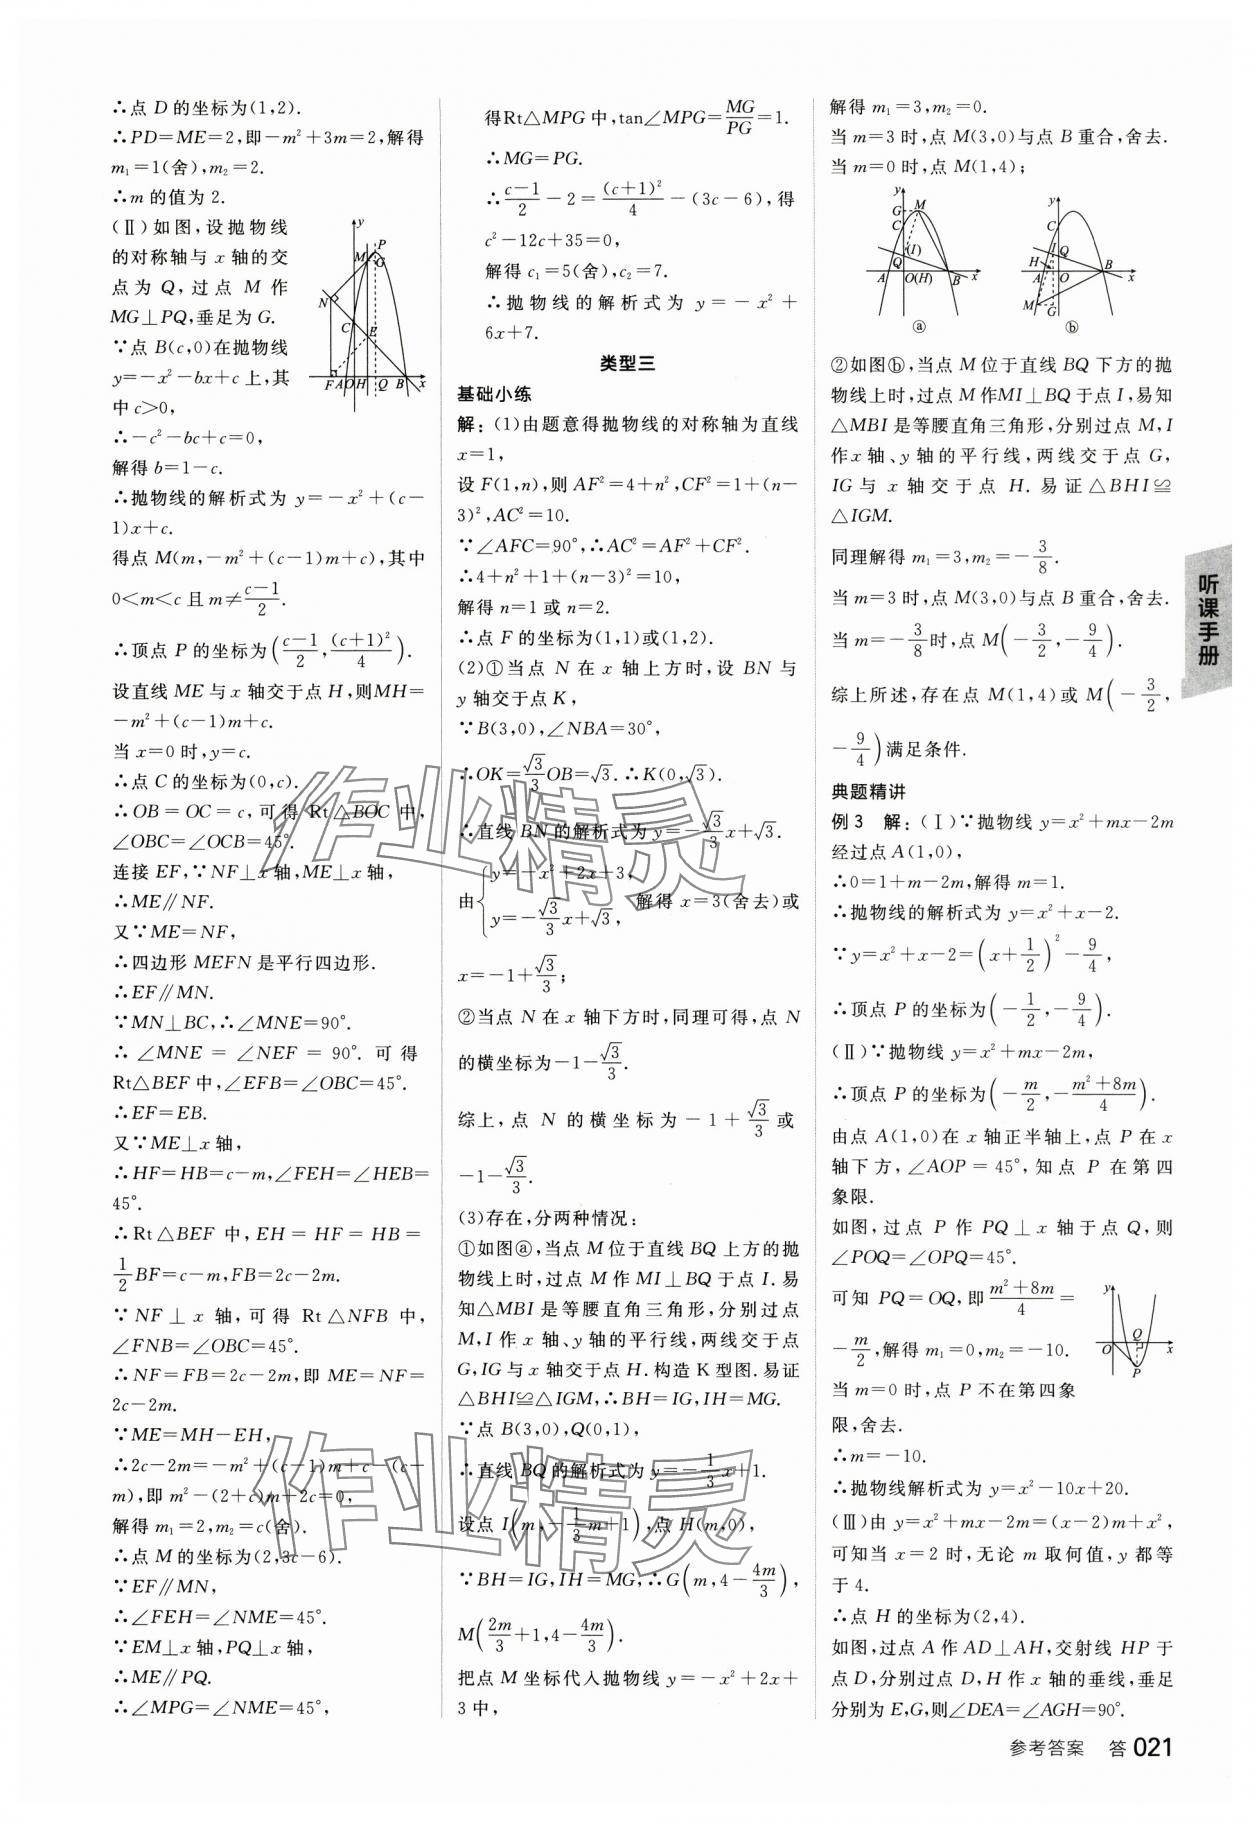 ∴点 D 的坐标为(1,2).
∴PD=ME=2,即-m²+3m=2,解得
m₁=1(舍),m₂=2.
∴m 的值为 2.
(Ⅱ)如图,设抛物线
的对称轴与 x 轴的交
点为 Q,过点 M 作
MG⊥PQ,垂足为 G.
∵点 B(c,0)在抛物线
y=-x²-bx+c 上,其
中 c>0,
∴-c²-bc+c=0,
解得 b=1-c.
∴抛物线的解析式为 y=-x²+(c-
1)x+c.
得点 M(m,-m²+(c-1)m+c),其中
0<m<c 且 m≠(c-1)/2.
∴顶点 P 的坐标为((c-1)/2,(c+1)²/4).
设直线 ME 与 x 轴交于点 H,则MH=
-m²+(c-1)m+c.
当 x=0 时,y=c.
∴点 C 的坐标为(0,c).
∴OB=OC=c,可得 Rt△BOC 中,
∠OBC=∠OCB=45°.
连接 EF,∵NF⊥x 轴,ME⊥x 轴,
∴ME∥NF.
又∵ME=NF,
∴四边形 MEFN 是平行四边形.
∴EF∥MN.
∵MN⊥BC,∴∠MNE=90°.
∴∠MNE=∠NEF=90°.可得
Rt△BEF 中,∠EFB=∠OBC=45°.
∴EF=EB.
又∵ME⊥x 轴,
∴HF=HB=c-m,∠FEH=∠HEB=
45°.
∴Rt△BEF 中,EH=HF=HB=
1/2 BF=c-m,FB=2c-2m.
∵NF⊥x 轴,可得 Rt△NFB 中,
∠FNB=∠OBC=45°.
∴NF=FB=2c-2m,即 ME=NF=
2c-2m.
∵ME=MH-EH,
∴2c-2m=-m²+(c-1)m+c-(c-
m),即 m²-(2+c)m+2c=0,
解得 m₁=2,m₂=c(舍).
∴点 M 的坐标为(2,3c-6).
∵EF∥MN,
∴∠FEH=∠NME=45°.
∵EM⊥x 轴,PQ⊥x 轴,
∴ME∥PQ.
∴∠MPG=∠NME=45°,
y
M P
G
N
C E
F A O H Q B x
得Rt△MPG 中,tan∠MPG=MG/PG=1.
∴MG=PG.
∴(c-1)/2-2=(c+1)²/4-(3c-6),得
c²-12c+35=0,
解得 c₁=5(舍),c₂=7.
∴抛物线的解析式为 y=-x²+
6x+7.
类型三
基础小练
解:(1)由题意得抛物线的对称轴为直线
x=1,
设 F(1,n),则 AF²=4+n²,CF²=1+(n-
3)²,AC²=10.
∵∠AFC=90°,∴AC²=AF²+CF².
∴4+n²+1+(n-3)²=10,
解得 n=1 或 n=2.
∴点 F 的坐标为(1,1)或(1,2).
(2)①当点 N 在 x 轴上方时,设 BN 与
y 轴交于点 K,
∵B(3,0),∠NBA=30°,
∴OK=√3/3 OB=√3.∴K(0,√3).
∴直线 BN 的解析式为 y=-√3/3 x+√3.
由{y=-x²+2x+3, y=-√3/3 x+√3, 解得 x=3(舍去)或
x=-1+√3/3;
②当点 N 在 x 轴下方时,同理可得,点 N
的横坐标为-1-√3/3.
综上,点 N 的横坐标为-1+√3/3或
-1-√3/3.
(3)存在,分两种情况:
①如图ⓐ,当点 M 位于直线 BQ 上方的抛
物线上时,过点 M 作 MI⊥BQ 于点 I.易
知△MBI 是等腰直角三角形,分别过点
M,I 作 x 轴、y 轴的平行线,两线交于点
G,IG 与 x 轴交于点 H.构造 K 型图.易证
△BHI≌△IGM,∴BH=IG,IH=MG.
∵点 B(3,0),Q(0,1),
∴直线 BQ 的解析式为 y=-1/3 x+1.
设点 I(m,-1/3 m+1),点 H(m,0),
∵BH=IG,IH=MG,∴G(m,4-4m/3),
M(2m/3+1,4-4m/3).
把点 M 坐标代入抛物线 y=-x²+2x+
3 中,
解得 m₁=3,m₂=0.
当 m=3 时,点 M(3,0)与点 B 重合,舍去.
当 m=0 时,点 M(1,4);
y
G M
C
(I)
Q
A O(H) B x
ⓐ
y
C
I Q
H
A O B x
M G
ⓑ
②如图ⓑ,当点 M 位于直线 BQ 下方的抛
物线上时,过点 M 作MI⊥BQ 于点 I,易知
△MBI 是等腰直角三角形,分别过点 M,I
作 x 轴、y 轴的平行线,两线交于点 G,
IG 与 x 轴交于点 H.易证△BHI≌
△IGM.
同理解得 m₁=3,m₂=-3/8.
当 m=3 时,点 M(3,0)与点 B 重合,舍去.
当 m=-3/8时,点 M(-3/2,-9/4).
综上所述,存在点 M(1,4)或 M(-3/2,
-9/4)满足条件.
典题精讲
例 3 解:(Ⅰ)∵抛物线 y=x²+mx-2m
经过点 A(1,0),
∴0=1+m-2m,解得 m=1.
∴抛物线的解析式为 y=x²+x-2.
∵y=x²+x-2=(x+1/2)²-9/4,
∴顶点 P 的坐标为(-1/2,-9/4).
(Ⅱ)∵抛物线 y=x²+mx-2m,
∴顶点 P 的坐标为(-m/2,-(m²+8m)/4).
由点 A(1,0)在 x 轴正半轴上,点 P 在 x
轴下方,∠AOP=45°,知点 P 在第四
象限.
如图,过点 P 作 PQ⊥x 轴于点 Q,则
∠POQ=∠OPQ=45°.
可知 PQ=OQ,即(m²+8m)/4=
-m/2,解得 m₁=0,m₂=-10.
当 m=0 时,点 P 不在第四象
限,舍去.
y
Q
O x
P
∴m=-10.
∴抛物线解析式为 y=x²-10x+20.
(Ⅲ)由 y=x²+mx-2m=(x-2)m+x²,
可知当 x=2 时,无论 m 取何值,y 都等
于 4.
∴点 H 的坐标为(2,4).
如图,过点 A 作 AD⊥AH,交射线 HP 于
点 D,分别过点 D,H 作 x 轴的垂线,垂足
分别为 E,G,则∠DEA=∠AGH=90°.
听课手册
作业精灵
作业精灵
参考答案 答 021